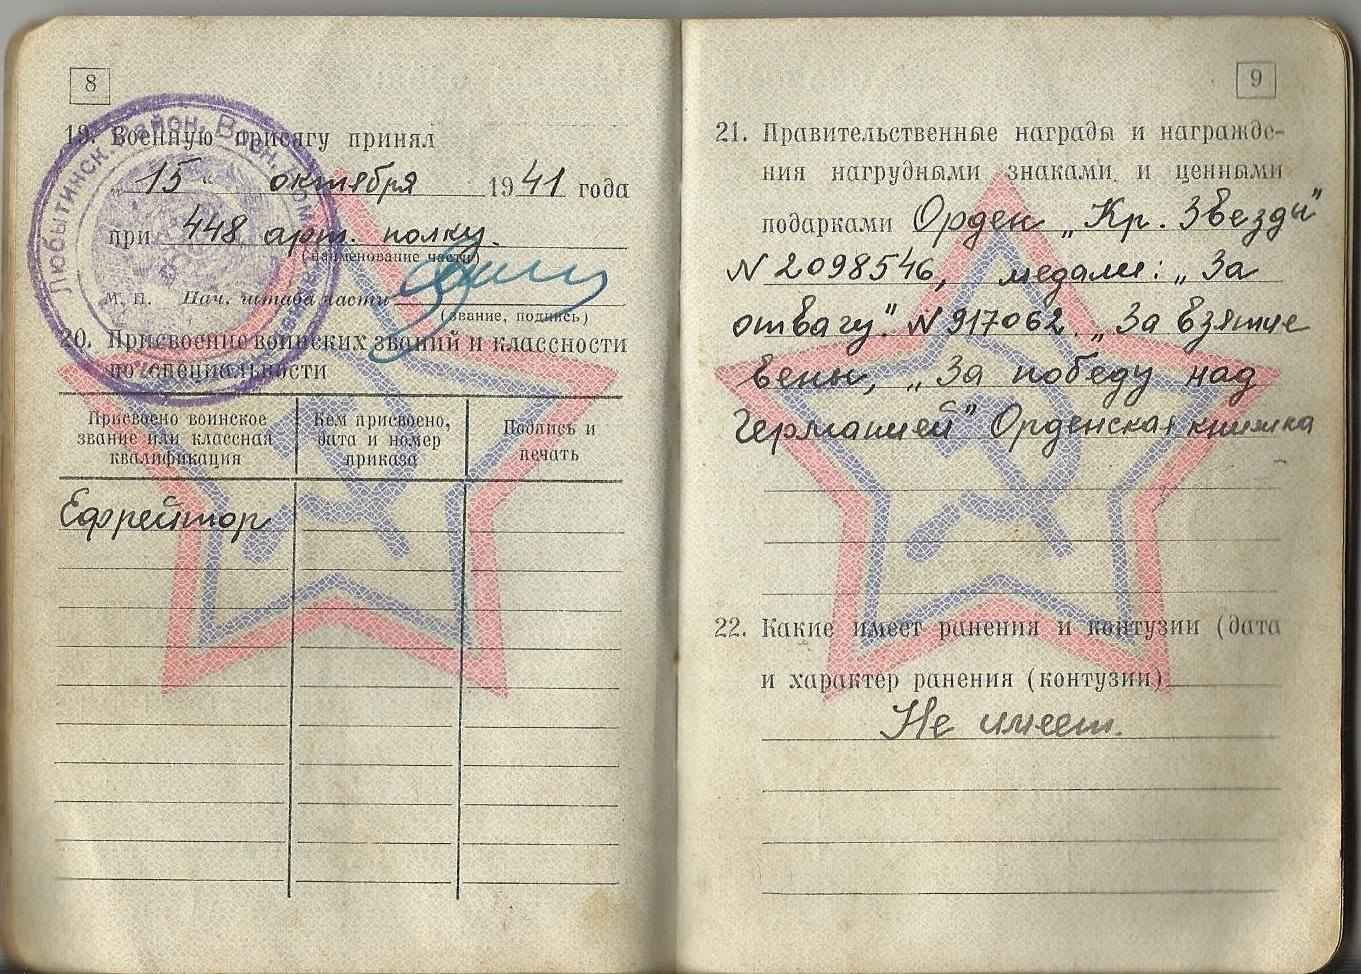 8
19. Военную присягу принял
„ 15 “ октября 1941 года
при 448 арт. полку.
(наименование части)
М. П. Нач. штаба части
(звание, подпись)
20. Присвоение воинских званий и классности
по специальности
Присвоено воинское
звание или классная
квалификация
Кем присвоено,
дата и номер
приказа
Подпись и
печать
Ефрейтор
Любытинск. Район. Воен. Ком.
9
21. Правительственные награды и награжде-
ния нагрудными знаками и ценными
подарками Орден „Кр. Звезды"
N 2098546, медали: „За
отвагу." N 917062. „За взятие
Вены, „За победу над
Германией" Орденская книжка
22. Какие имеет ранения и контузии (дата
и характер ранения (контузии)
Не имеет.